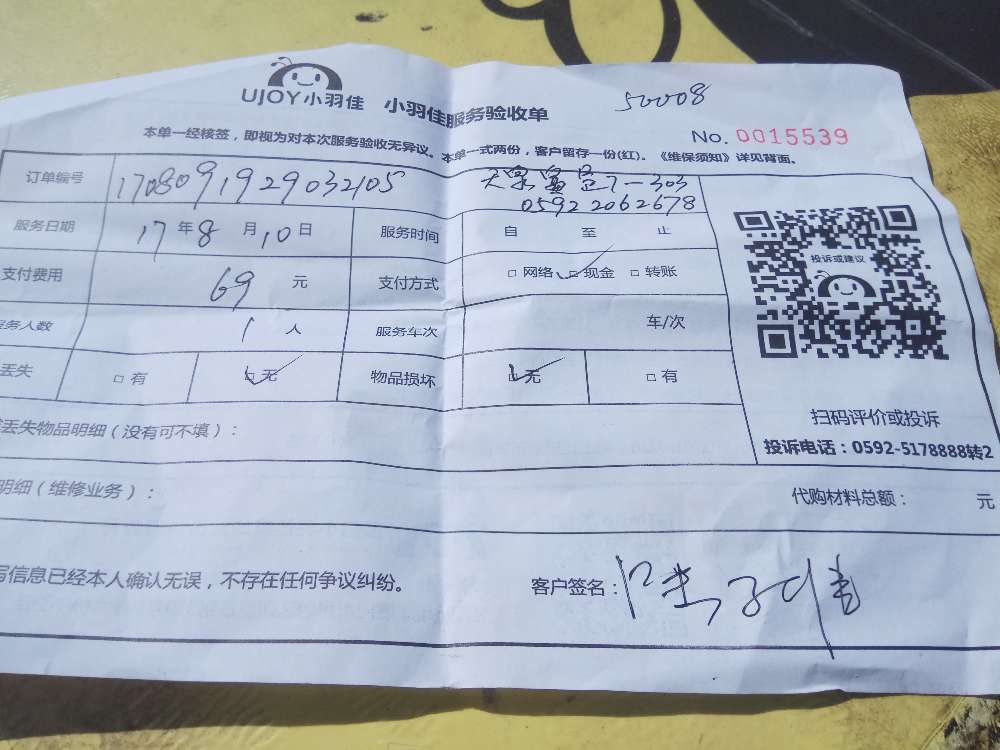 UJOY小羽佳 小羽佳服务验收单
50008
No. 0015539
本单一经核签，即视为对本次服务验收无异议。本单一式两份，客户留存一份(红)。《维保须知》详见背面。
订单编号 1708091929032105 7-303
05922062678
服务日期 17年8月10日 服务时间 自 至 止
支付费用 69 元 支付方式 □ 网络 □ 现金 □ 转账
服务人数 1 人 服务车次 车/次
丢失 □ 有 □ 无 物品损坏 □ 无 □ 有
投诉或建议
扫码评价或投诉
投诉电话：0592-5178888转2
丢失物品明细（没有可不填）：
明细（维修业务）： 代购材料总额： 元
写信息已经本人确认无误，不存在任何争议纠纷。 客户签名：